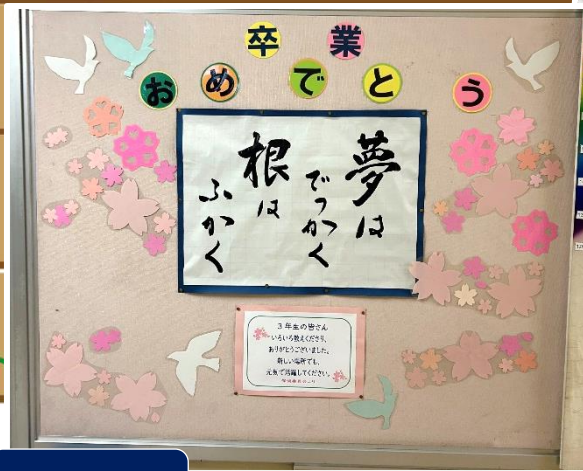 卒業
おめでとう
夢は
でっかく
根は
ふかく
3年生の皆さん
いろいろ教えてくださり、
ありがとうございました。
新しい場所でも、
元気で活躍してください。